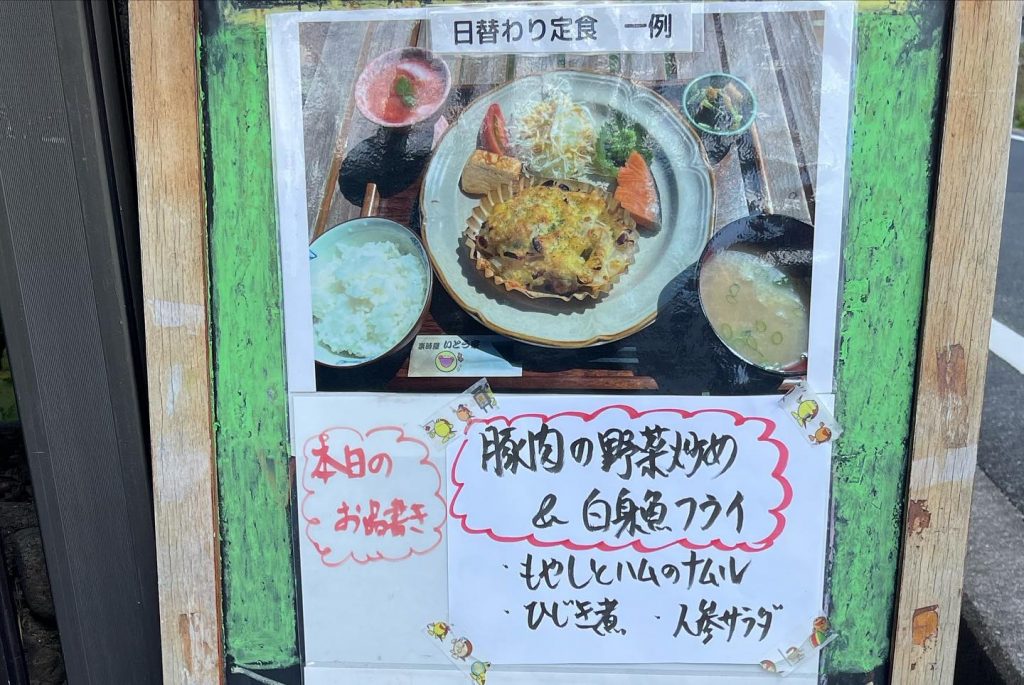 日替わり定食 一例
いとう家
本日の
お品書き
豚肉の野菜炒め
& 白身魚フライ
・もやしとハムのナムル
・ひじき煮 ・人参サラダ